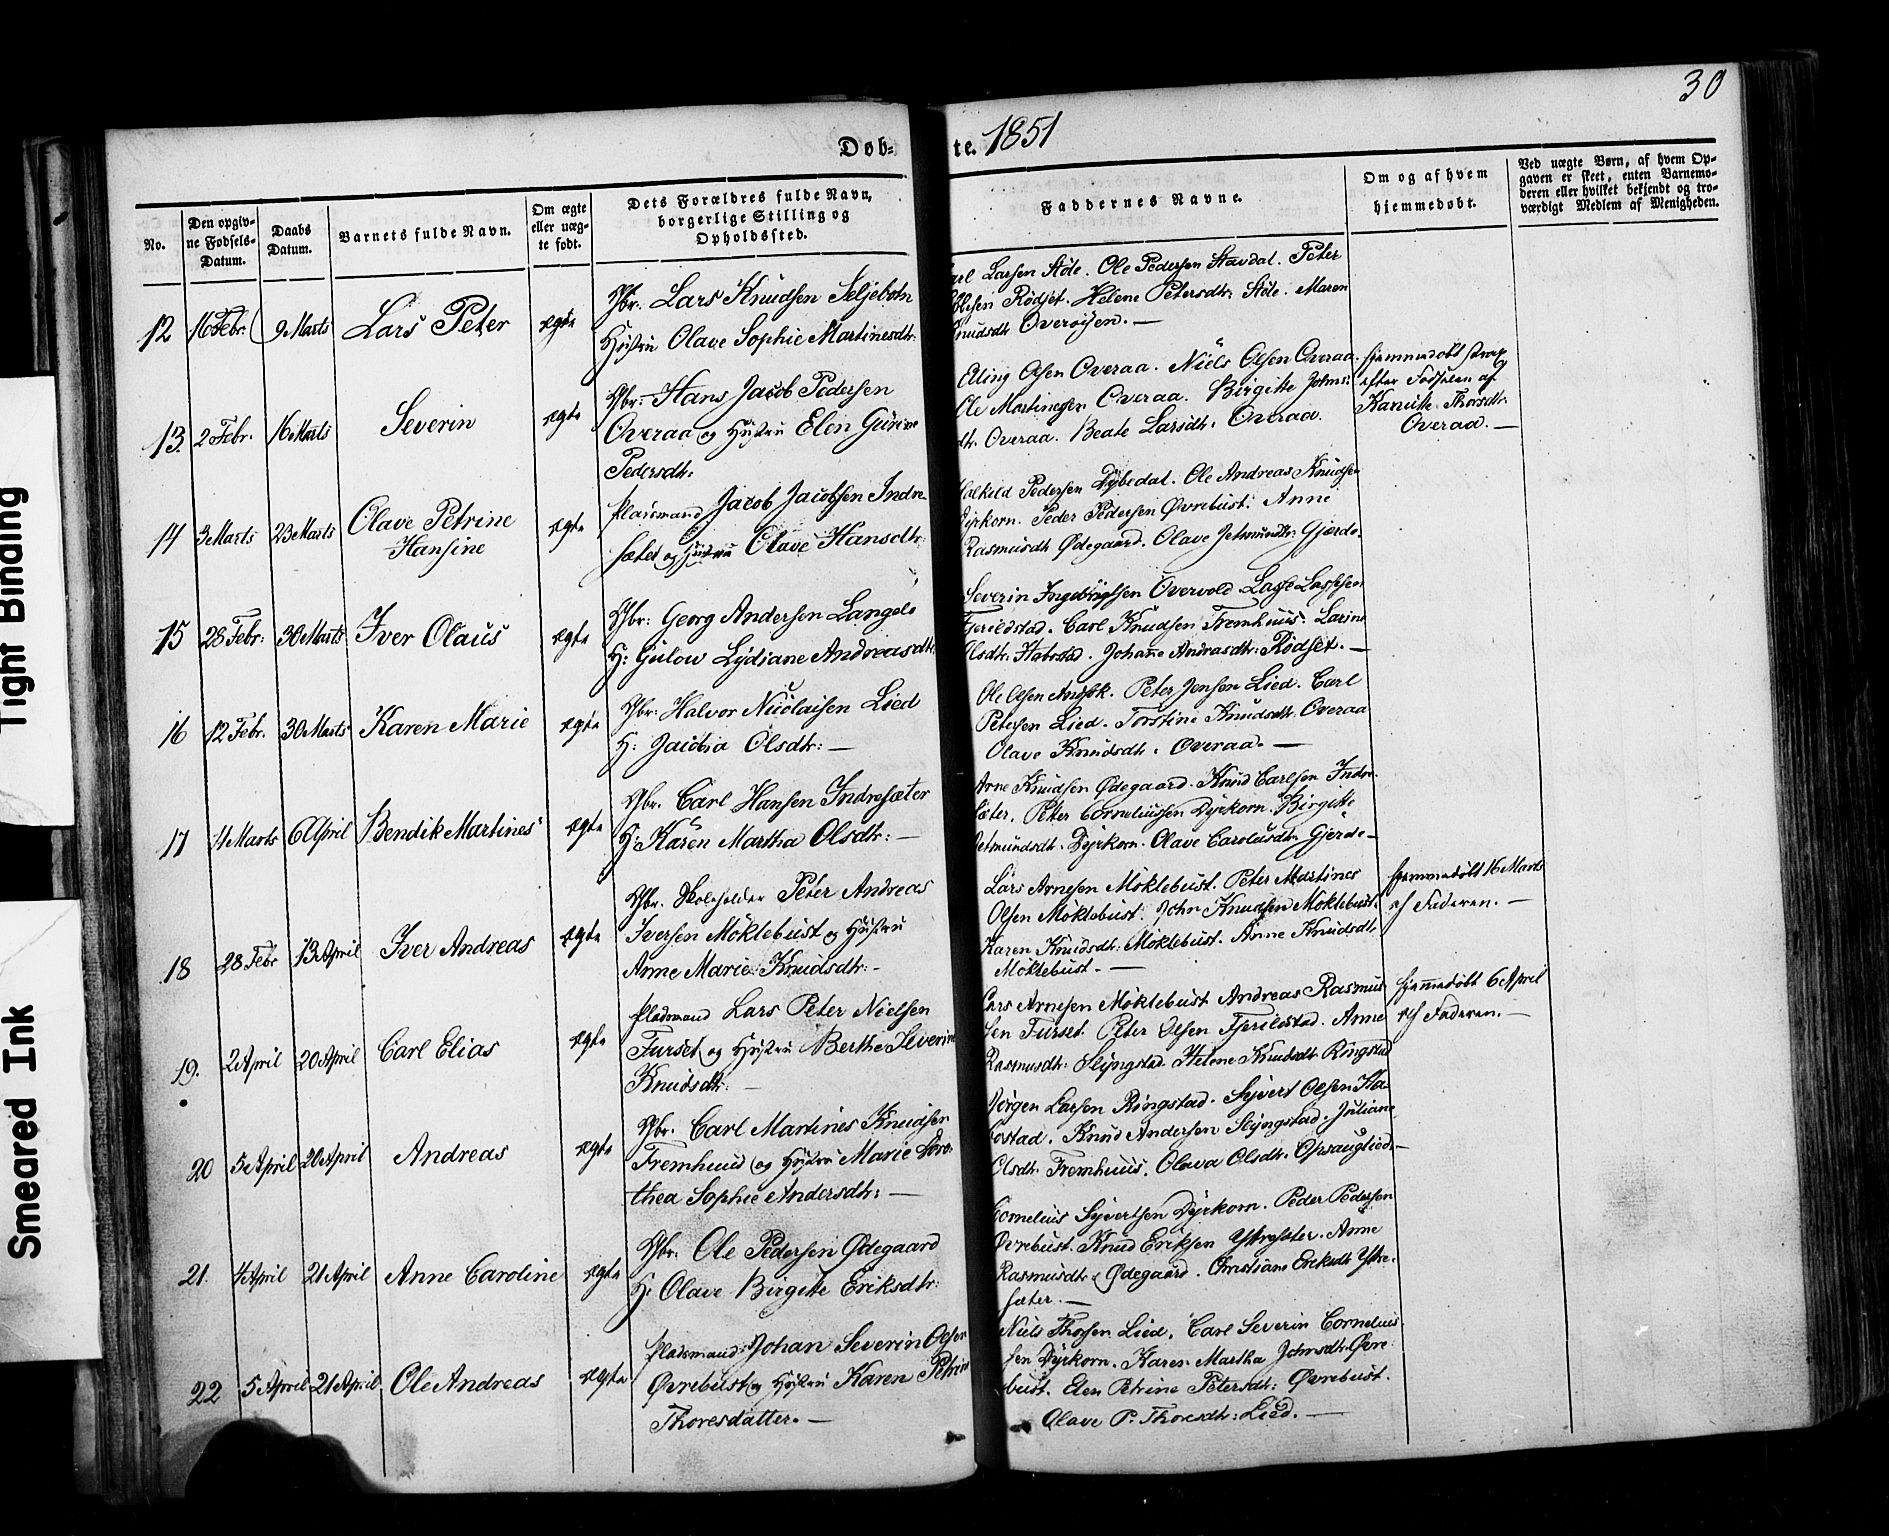 30
Døb-te. 1851
No.
Den opgiv-
ne Fødsels-
Datum.
Daabs
Datum.
Barnets fulde Navn.
Om ægte
eller uæg-
te født.
Dets Forældres fulde Navn,
borgerlige Stilling og
Opholdssted.
Faddernes Navne.
Om og af hvem
hjemmedøbt.
Ved uægte Børn, af hvem Op-
gaven er skeet, enten Barnemo-
deren eller hvilket bekjendt og tro-
værdigt Medlem af Menigheden.
12 16 Febr. 9 Marts Lars Peter ægte
Gbr. Lars Knudsen Seljebotn
Hustru Olave Sophie Martinesdtr:
Larsen Støle. Ole Pedersen Stavdal. Peter
Rødset. Helene Petersdtr: Støle. Maren
Knudsdtr Overøien. —
13. 2 Febr. 16 Marts Severin ægte
Gbr: Hans Jacob Pedersen
Overaa og Hustru Elen Gurine
Pedersdtr:
Elling Olsen Overaa. Niels Olsen Overaa.
Ole Martinesen Overaa. Birgitte Johns:
dtr. Overaa. Beate Larsdtr. Overaa.
hjemmedøbt strax
efter Fødselen af
Kanutte Thorsdtr
Overaa. —
14 3 Marts 23 Marts Olave Petrine
Hansine ægte
Pladsmand Jacob Jacobsen Indre-
sætet og Hustru Olave Hansdtr:
Pedersen Dybedal. Ole Andreas Knudsen
Dyrkorn. Peder Pedersen Øvrebust. Anne
Rasmusdtr Ødegaard. Olave Jetmundsdtr: Gjerde.
15 28 Febr: 30 Marts Iver Olaus ægte
Gbr: Georg Andersen Langelo
H: Gulow Lydiane Andreasdtr:
Severin Ingebrigtsen Overvold Lasse Lassesen
Fjerildstad. Carl Knudsen Fremhuus. Larine
Olsdtr: . Johanne Andreasdtr: Rødset. —
16 12 Febr. 30 Marts Karen Marie ægte
Gbr: Halvor Nicolaisen Lied
H: Jacobia Olsdtr: —
Ole Olsen . Peter Jensen Lied. Carl
Petersen Lied. Torstine Knudsdtr. Overaa
Olave Knudsdtr. Overaa. —
17 4 Marts 6 April Bendik Martines ægte
Gbr. Carl Hansen Indresæter
H: Karen Martha Olsdtr: —
Arne Knudsen Ødegaard. Knud Carlsen Indre-
sæter. Peter Corneliussen Dyrkorn. Birgitte
Jetmundsdtr. Dyrkorn. Olave Carolusdtr. Gjerde—
18 28 Febr 13 April Iver Andreas ægte
Gbr. Skoleholder Peter Andreas
Iversen Møklebust og Hustru
Anne Marie Knudsdtr: —
Lars Arnesen Møklebust. Peter Martines
Olsen Møklebust. John Knudsen Møklebust.
Karen Knudsdtr: Møklebust. Anne Knudsdtr.
Møklebust. —
hjemmedøbt 16 Marts
af Faderen. —
19. 2 April 20 April Carl Elias ægte
Pladsmand Lars Peter Nielsen
Furset og Hustru Berthe Severine
Knudsdtr: —
Lars Arnesen Møklebust Andreas Rasmus-
sen Furset. Peter Olsen Fjerildstad. Anne
Rasmusdtr: Slyngstad. Helene Knudsdtr. Ringstad
hjemmedøbt 6 April
af Faderen. —
20 5 April 20 April Andreas ægte
Gbr. Carl Martines Knudsen
Fremhuus og Hustru Marie Doro-
thea Sophie Andersdtr: —
Jørgen Larsen Ringstad. Syvert Olsen Sta-
Knud Andersen Slyngstad. Juliane
Olsdtr. Fremhuus. Olava Olsdtr. Opsauglied. —
21. 4 April 21 April Anne Caroline ægte
Gbr. Ole Pedersen Ødegaard
H: Olave Birgitte Eriksdtr:
Cornelius Syvertsen Dyrkorn. Peder Pedersen
Øvrebust. Knud Eriksen Yttresæter. Anne
Rasmusdtr. Ødegaard. Christiane Eriksdtr Yttre-
sæter. —
22 5 April 21 April Ole Andreas ægte
Pladsmand Johan Severin Olsen
Øvrebust og Hustru Karen Petrine
Thoresdatter. —
Niels Thorsen Lied. Carl Severin Cornelius-
sen Dyrkorn. Karen Martha Johnsdtr. Øvre-
bust. Elen Petrine Petersdtr: Øvrebust.
Olave P. Thoresdtr: Lied. —
Tight Binding
Smeared Ink